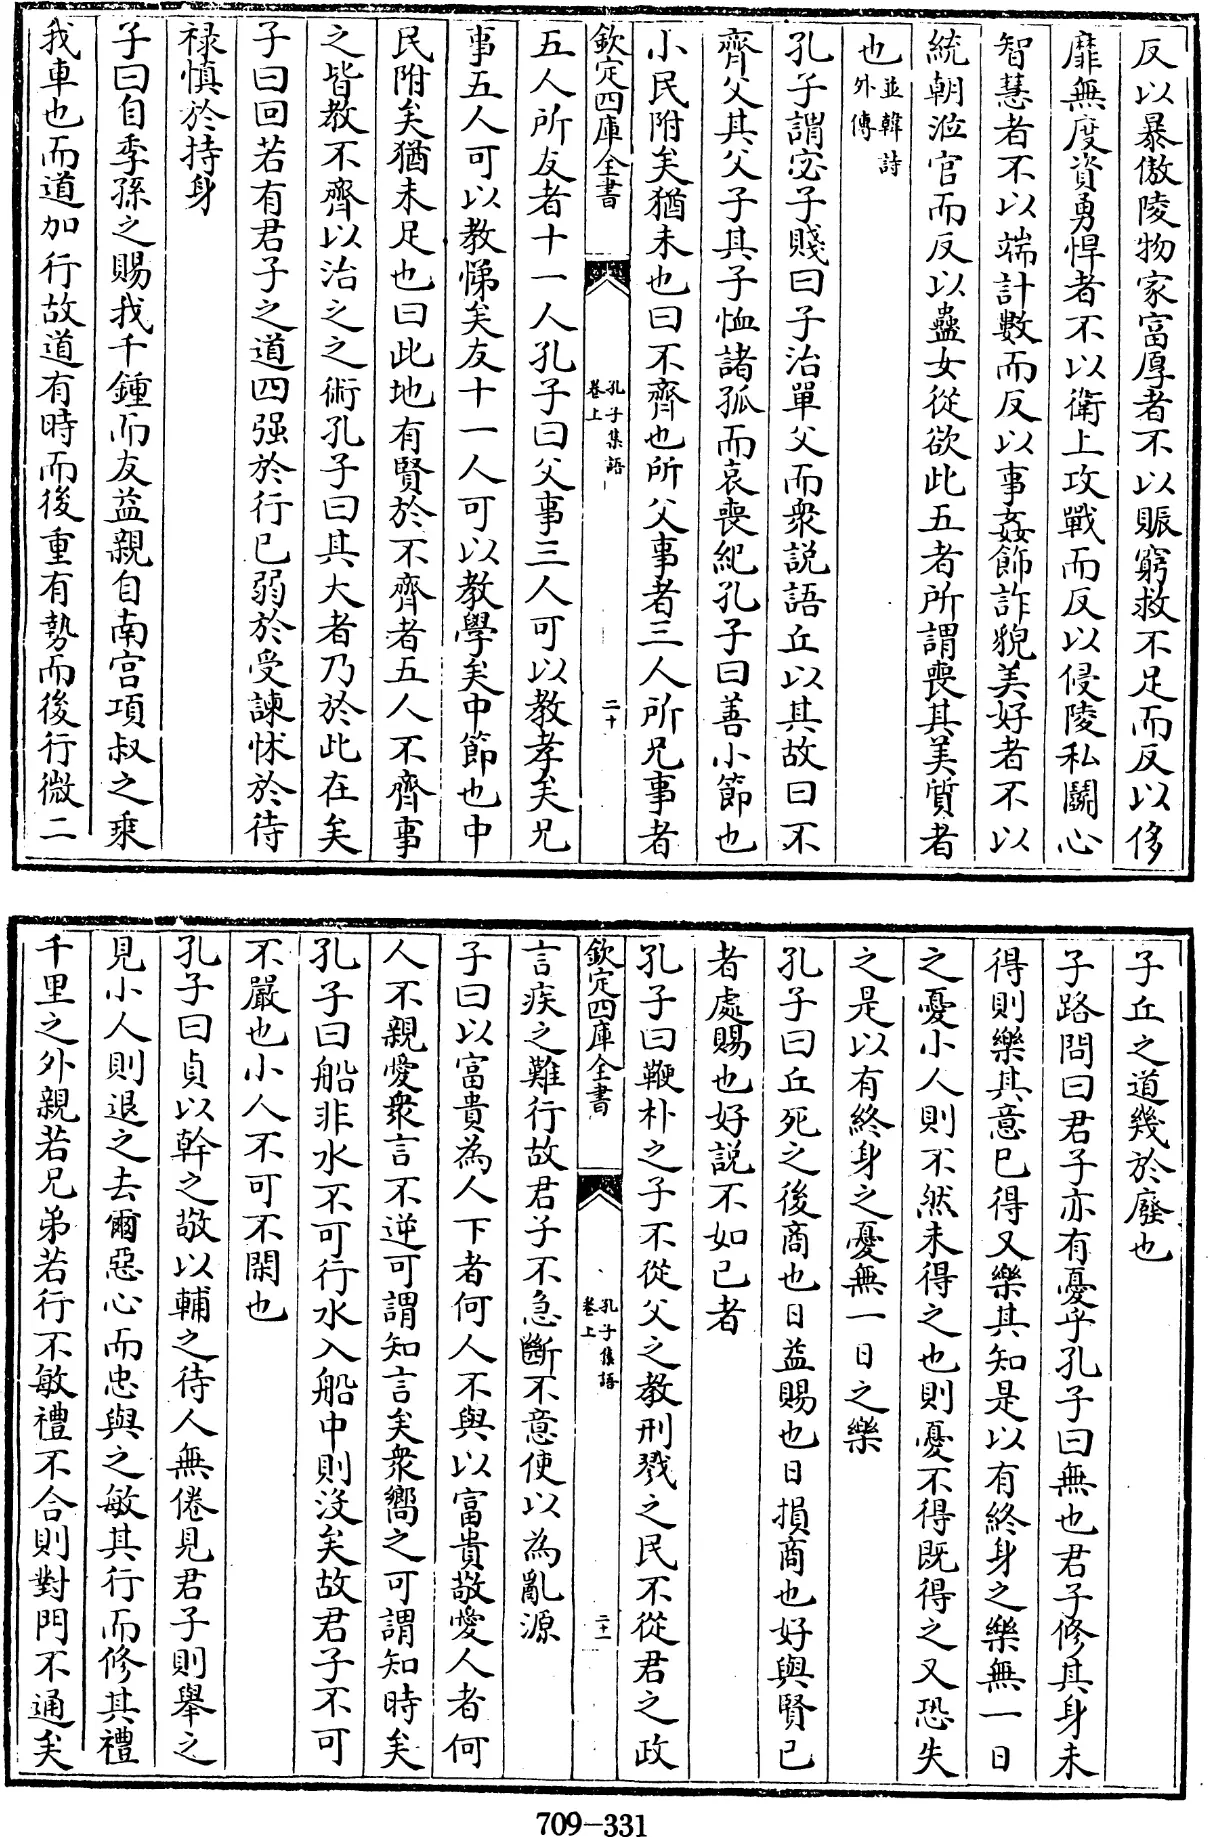 反以暴傲陵物家富厚者不以賑窮救不足而反以侈
靡無度資勇悍者不以衛上攻戰而反以侵陵私鬭心
智慧者不以端計數而反以事姦飾詐貌美好者不以
統朝涖官而反以蠱女從欲此五者所謂喪其美質者
也並韓詩外傳
孔子謂宓子賤曰子治單父而衆説語丘以其故曰不
齊父其父子其子恤諸孤而哀喪紀孔子曰善小節也
小民附矣猶未也曰不齊也所父事者三人所兄事者
欽定四庫全書
孔子集語
卷上
二十
五人所友者十一人孔子曰父事三人可以教孝矣兄
事五人可以教悌矣友十一人可以教學矣中節也中
民附矣猶未足也曰此地有賢於不齊者五人不齊事
之皆教不齊以治之之術孔子曰其大者乃於此在矣
子曰回若有君子之道四强於行己弱於受諫怵於待
禄慎於持身
子曰自季孫之賜我千鍾而友益親自南宫項叔之乘
我車也而道加行故道有時而後重有勢而後行微二
子丘之道幾於廢也
子路問曰君子亦有憂乎孔子曰無也君子修其身未
得則樂其意已得又樂其知是以有終身之樂無一日
之憂小人則不然未得之也則憂不得既得之又恐失
之是以有終身之憂無一日之樂
孔子曰丘死之後商也日益賜也日損商也好與賢己
者處賜也好説不如己者
孔子曰鞭朴之子不從父之教刑戮之民不從君之政
欽定四庫全書
孔子集語
卷上
二十一
言疾之難行故君子不急斷不意使以為亂源
子曰以富貴為人下者何人不與以富貴敬愛人者何
人不親愛衆言不逆可謂知言矣衆嚮之可謂知時矣
孔子曰船非水不可行水入船中則沒矣故君子不可
不嚴也小人不可不閑也
孔子曰貞以幹之敬以輔之待人無倦見君子則舉之
見小人則退之去爾惡心而忠與之敏其行而修其禮
千里之外親若兄弟若行不敏禮不合則對門不通矣
709-331